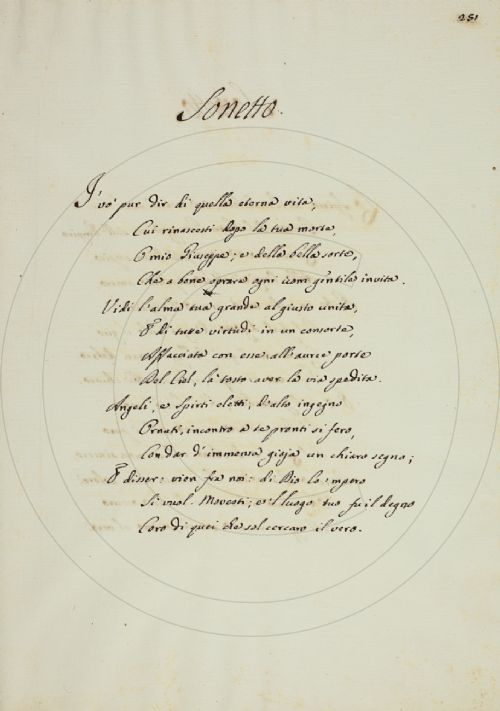 281
Sonetto.
I' vo' pur dir di quella eterna vita,
Cui rinascesti dopo la tua morte,
O mio Giuseppe; e della bella sorte,
Che a bene oprare ogni uom gentile invita.
Vidi l'alma tua grande al giusto unita,
E di tutte virtudi in un consorte,
Affacciata con esse all'auree porte
Del Ciel, là tosto aver la via spedita.
Angeli, e Spirti eletti, d'alto ingegno
Ornati, incontro a te pronti si fero,
Con dar d'immensa gioja un chiaro segno;
E disser: vien fra noi: di Dio lo 'mpero
Si vuol. Morcoti; e 'l luogo tuo fu il degno
Coro di quei che sol cercaro il vero.